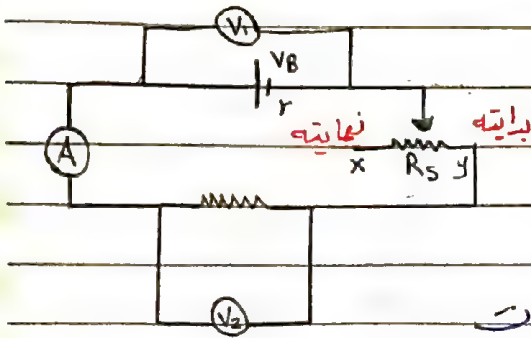 V₁
V_B
r
نهايته
بدايته
A
x R_S y
V₂